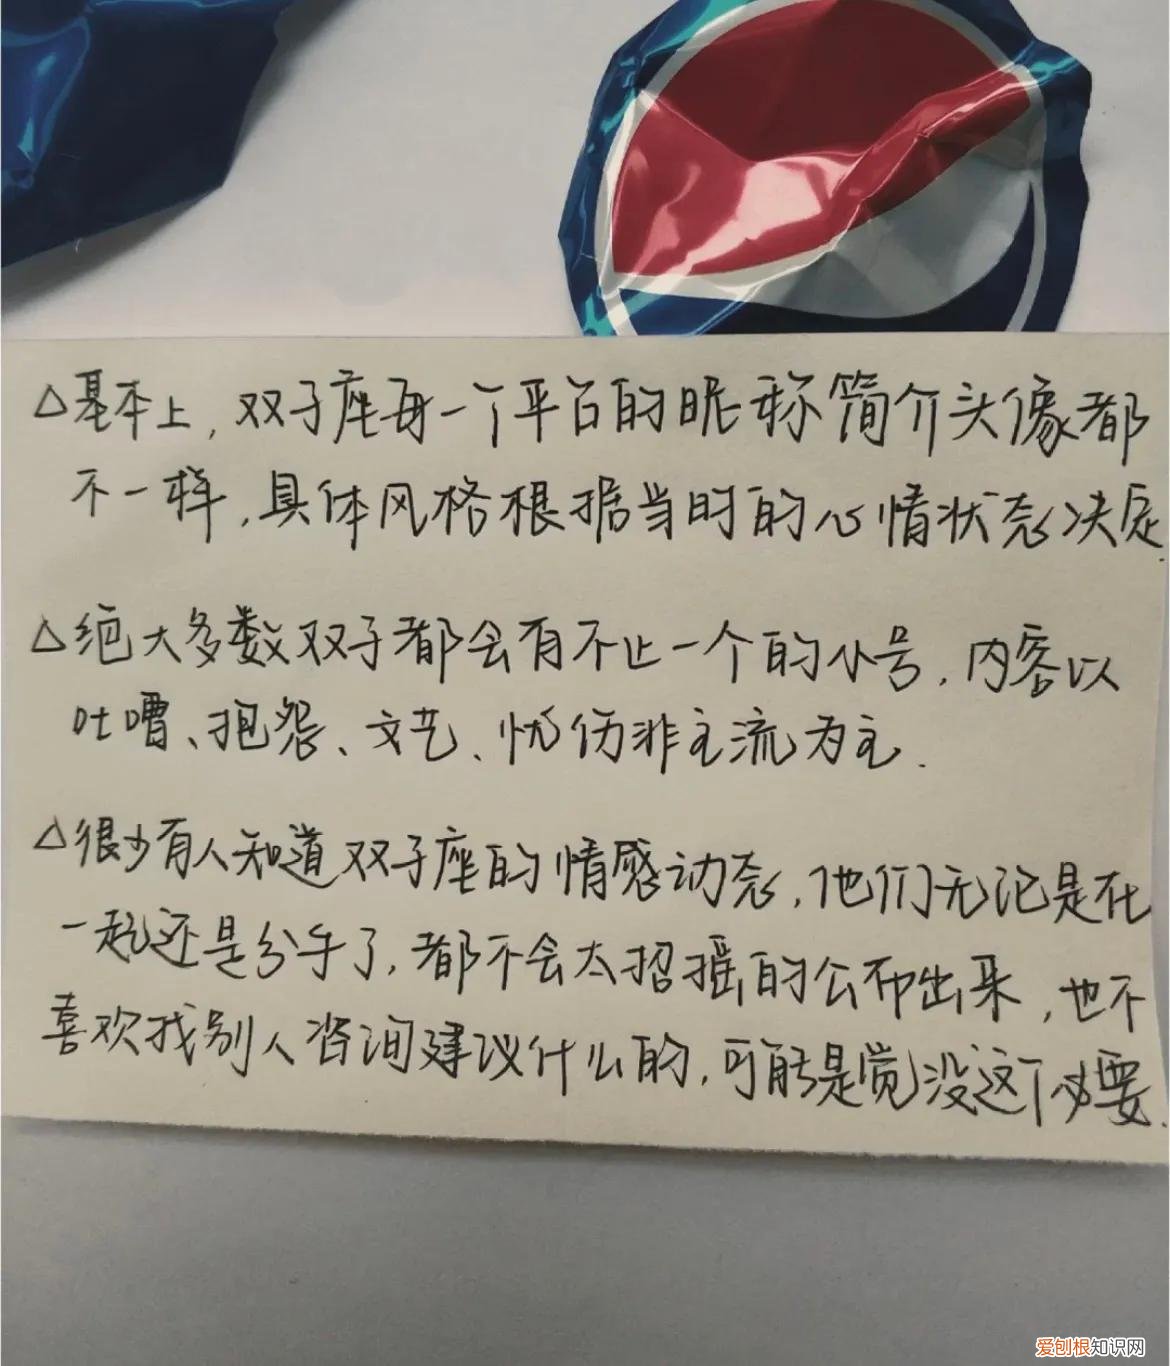 △基本上，双子座每一个平台的昵称简介头像都
不一样，具体风格根据当时的心情状态决定.
△绝大多数双子都会有不止一个的小号，内容以
吐嘈、抱怨、文艺、忧伤非主流为主.
△很少有人知道双子座的情感动态，他们无论是在
一起还是分手了，都不会太招摇的公布出来，也不
喜欢找别人咨询建议什么的，可能是觉没这个必要.
爱刨根知识网